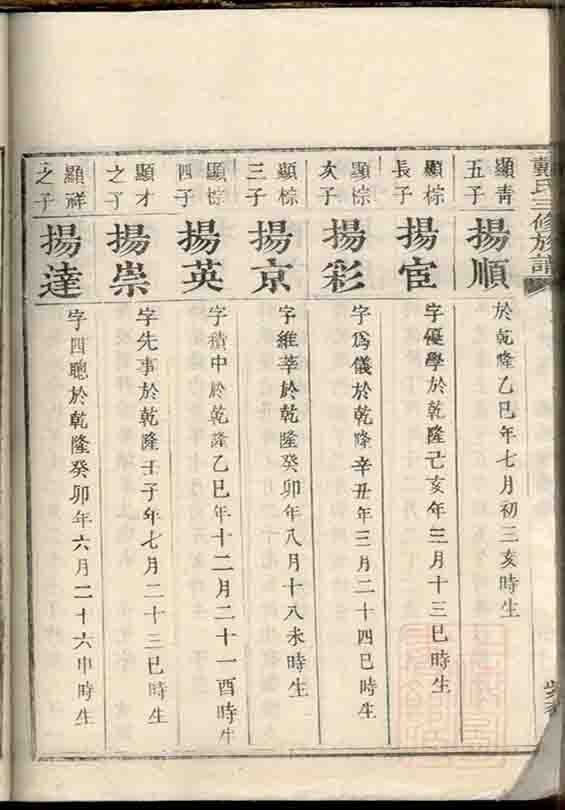 戴氏三修族譜
顯青五子
揚順
於乾隆乙巳年七月初三亥時生
顯棕長子
揚宦
字優學於乾隆己亥年三月十三巳時生
顯棕次子
揚彩
字爲儀於乾隆辛丑年三月二十四巳時生
顯棕三子
揚京
字維莘於乾隆癸卯年八月十八未時生
顯棕四子
揚英
字積中於乾隆乙巳年十二月二十一酉時生
顯才之子
揚崇
字先事於乾隆壬子年七月二十三巳時生
顯祥之子
揚達
字四聰於乾隆癸卯年六月二十六申時生